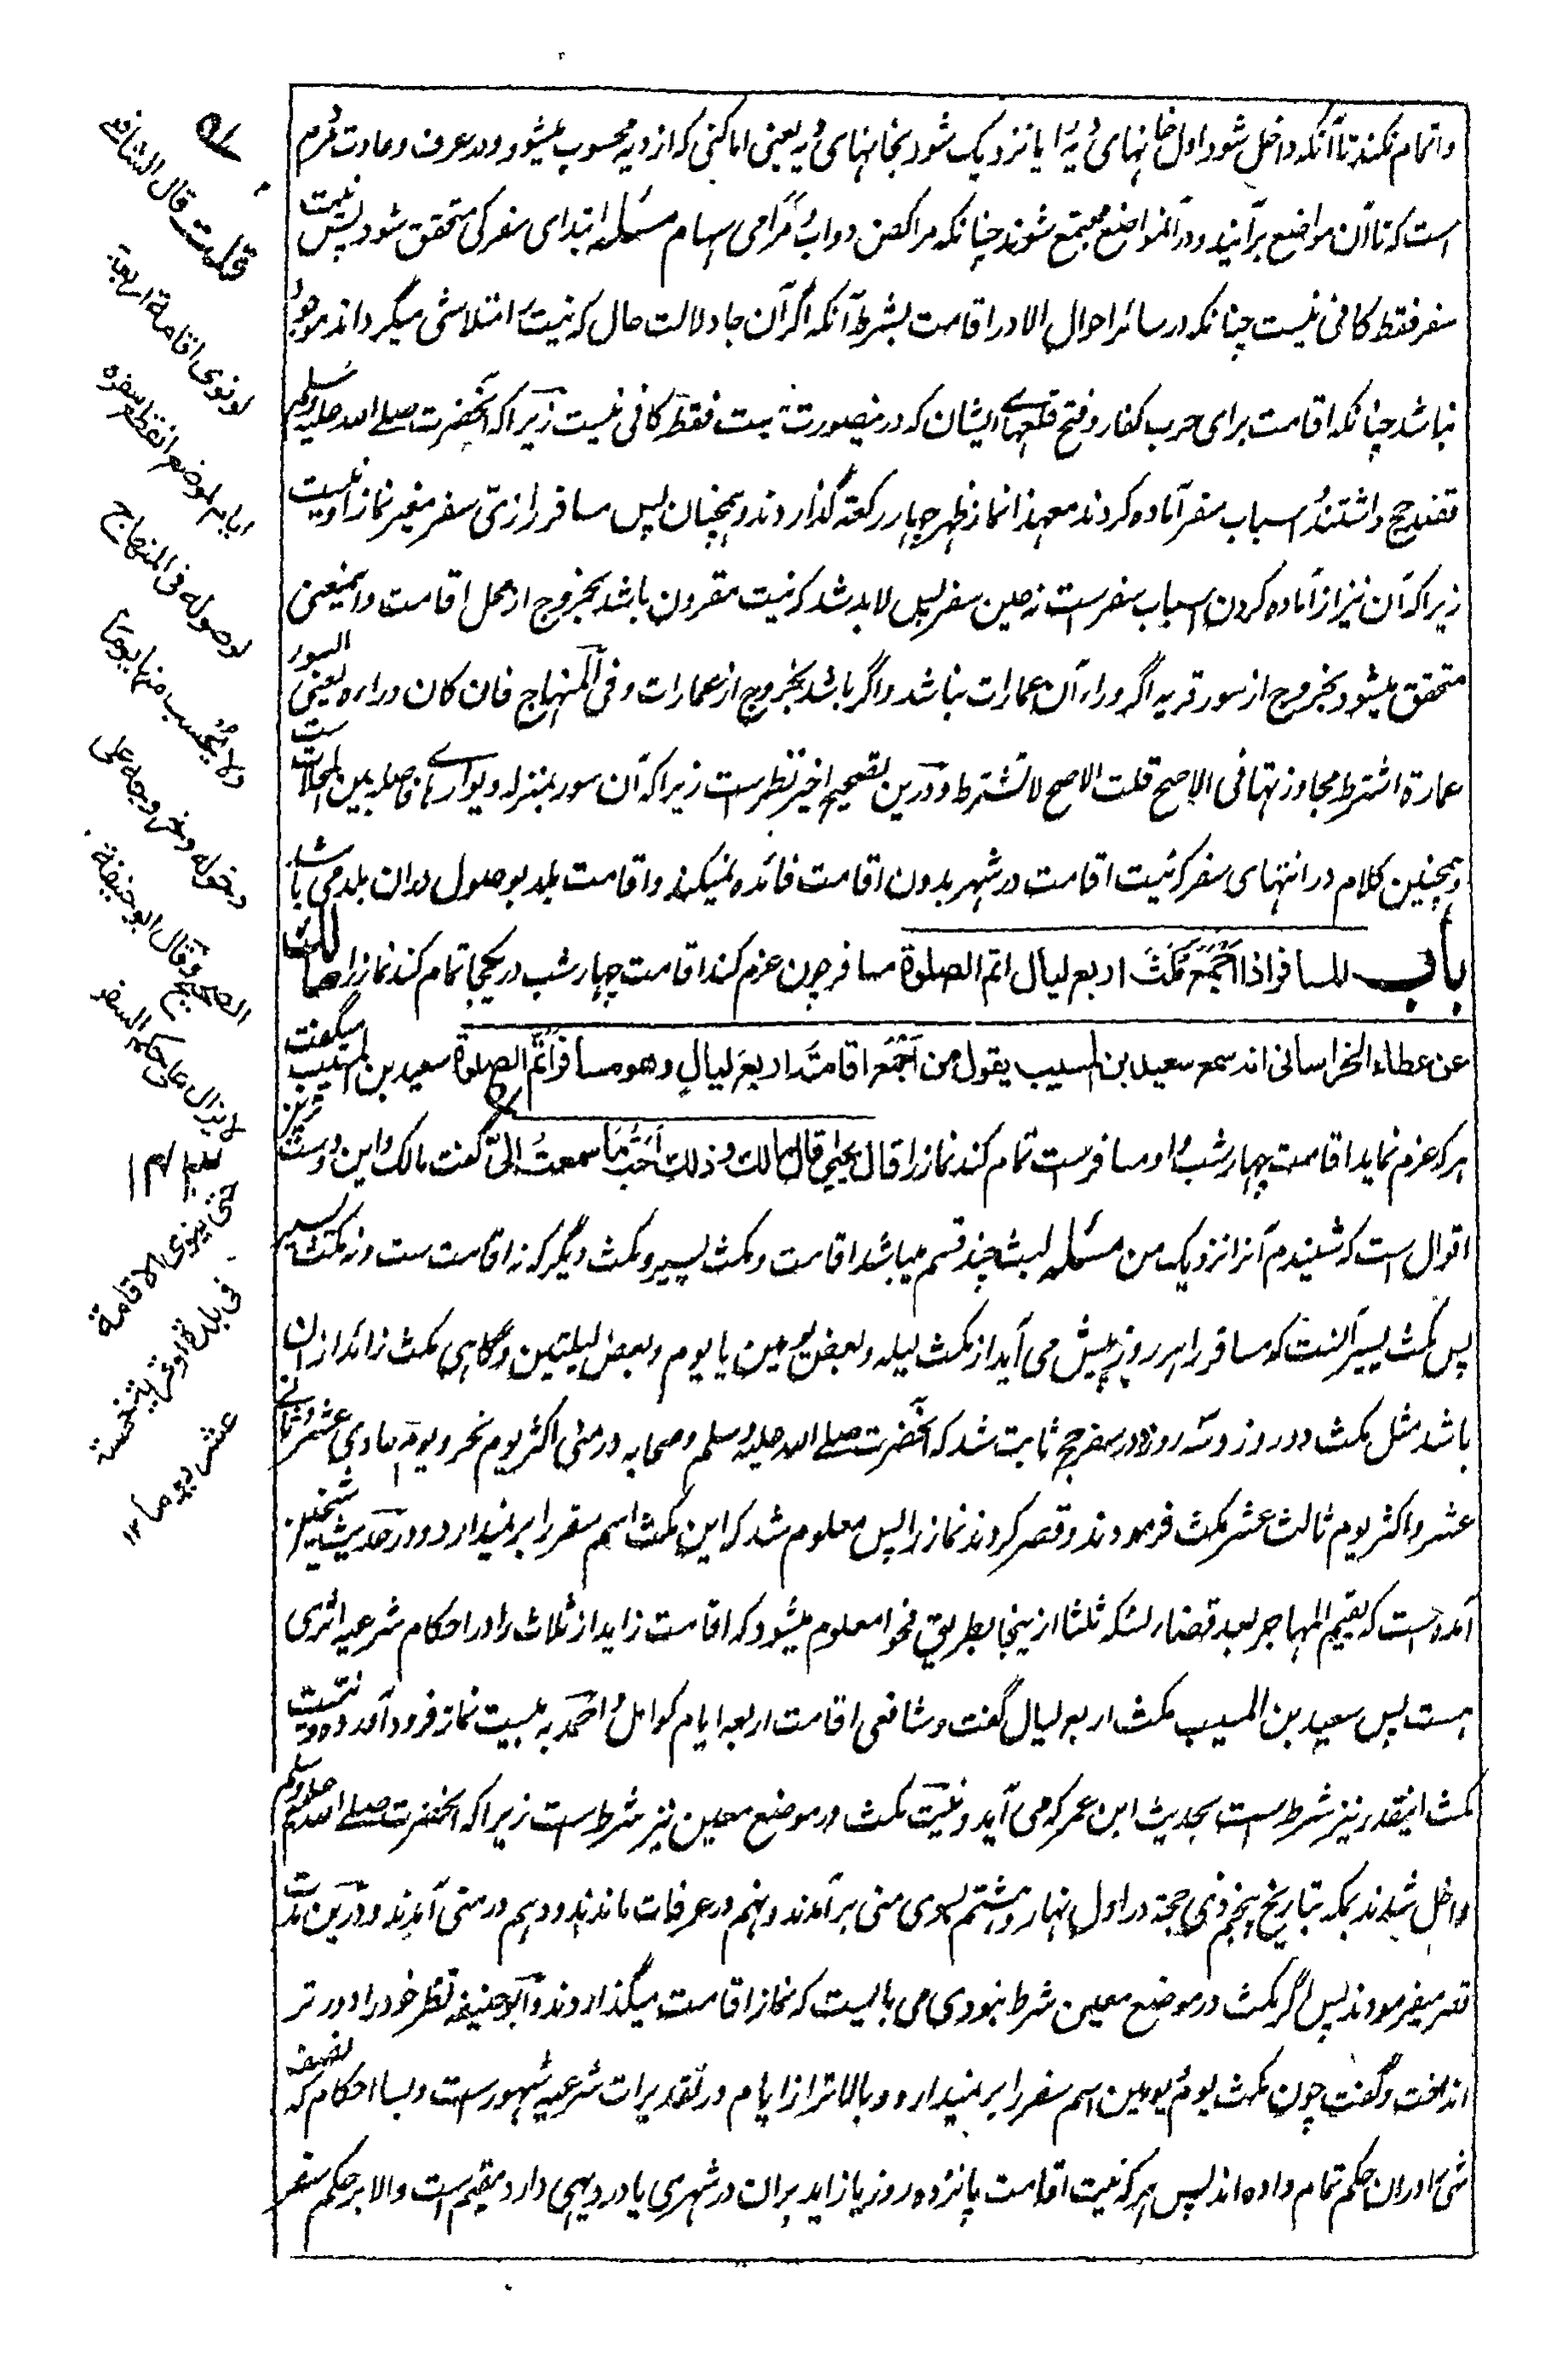 واتمام نکند تا آنکه داخل شود اول خانهای دیه را یا نزدیک شود بخانهای دیه یعنی اماکنی که از دیه محسوب میشود در عرف و عادت مردم
است که تا آن مواضع برآیند و در آنمواضع مجتمع شوند چنانکه مراکض دواب و مرامی سهام مسئله ابتدای سفر کی متحقق شود پس نیت
سفر فقط کافی نیست چنانکه در سائر احوال الا در اقامت بشرط آنکه اگر آن جا دلالت حال که نیت را متلاشی میگرداند موجود
نباشد چنانکه اقامت برای حرب کفار و فتح قلعهای ایشان که درینصورت نیت فقط کافی نیست زیرا که آنحضرت صلی الله علیه وسلم
قصد حج داشتند و اسباب سفر آماده کردند معهذا نماز ظهر چهار رکعت گذاردند و همچنان پس مسافر را زی سفر مغیر نماز او نیست
زیرا که آن نیز از آماده کردن اسباب سفرست نه عین سفر پس لابد شد که نیت مقرون باشد بخروج از محل اقامت و اینمعنی
متحقق میشود بخروج از سور قریه اگر وراء آن عمارات نباشد و اگر باشد بخروج از عمارات و فی المنهاج فان کان وراءه یعنی السور
عمارة اشترط مجاوزتها فی الاصح قلت الاصح لا تشترط و درین تصحیح اخیر نظرست زیرا که آن سور بمنزله دیوارهای فاصله بین المحلات ست
و همچنین کلام در انتهای سفر که نیت اقامت در شهر بدون اقامت فائده نمیکند و اقامت بلد بوصول بدان بلد می باشد
باب المسافر اذا اجمع مکث اربع لیال اتم الصلوة مسافر چون عزم کند اقامت چهار شب در یکجا تمام کند نماز را مالك
عن عطاء الخراسانی انه سمع سعید بن المسیب یقول من اجمع اقامة اربع لیال وهو مسافر اتم الصلوة سعید بن المسیب میگفت
هر که عزم نماید اقامت چهار شب و او مسافرست تمام کند نماز را قال یحیی قال مالك وذلك احب ما سمعت الی گفت مالک و این دوست ترین
اقوال است که شنیدم آنرا نزدیک من مسئله لبث چند قسم میباشد اقامت و مکث یسیر و مکث دیگر که نه اقامت ست و نه مکث یسیر
پس مکث یسیر آنست که مسافر را هر روز پیش می آید از مکث لیله و بعض یومین یا یوم و بعض لیلتین و گاهی مکث زائد از ان
باشد مثل مکث دو روز و سه روز در سفر حج ثابت شد که آنحضرت صلی الله علیه وسلم و صحابه در منی اکثر یوم نحر و یوم حادی عشر و ثانی
عشر و اکثر یوم ثالث عشر مکث فرمودند و قصر کردند نماز را پس معلوم شد که این مکث اسم سفر را بر نمیدارد و در حدیث شیخین
آمده است که یقیم المهاجر بعد قضاء نسکه ثلثا ازینجا بطریق فحوا معلوم میشود که اقامت زاید از ثلاث را در احکام شرعیه اثری
هست پس سعید بن المسیب مکث اربع لیال گفت و شافعی اقامت اربعه ایام کوامل و احمد به بیست نماز فرود آمد و نیت
مکث اینقدر نیز شرط ست بحدیث ابن عمر که می آید و نیت مکث در موضع معین نیز شرط ست زیرا که آنحضرت صلی الله علیه وسلم
داخل شدند بمکه بتاریخ پنجم ذی حجة در اول نهار و هشتم بسوی منی برآمدند و نهم در عرفات ماندند و دهم در منی آمدند و درین مدت
قصر میفرمودند پس اگر مکث در موضع معین شرط نبودی می بایست که نماز اقامت میگذاردند و ابو حنیفه نظر خود را دور تر
انداخت و گفت چون مکث یوم و یومین اسم سفر را بر نمیدارد و بالاتر از ایام در تقدیرات شرعیه شهورست و بسا احکام که نصف
شئ را در ان حکم تمام داده اند پس هر که نیت اقامت پانزده روز یا زاید بران در شهری یا در دیهی دارد مقیم است والا بر حکم سفر
قلت قال الشافعی
لو نوی اقامة اربعة
ایام بموضع انقطع سفره
بوصوله فی المنهاج
ولا یحسب منها یوما
دخوله وخروجه علی
الصحیح وقال ابو حنیفة
لا یزال علی حکم السفر
حتی ینوی الاقامة
فی بلدة او قریة خمسة
عشر یوما ١٢